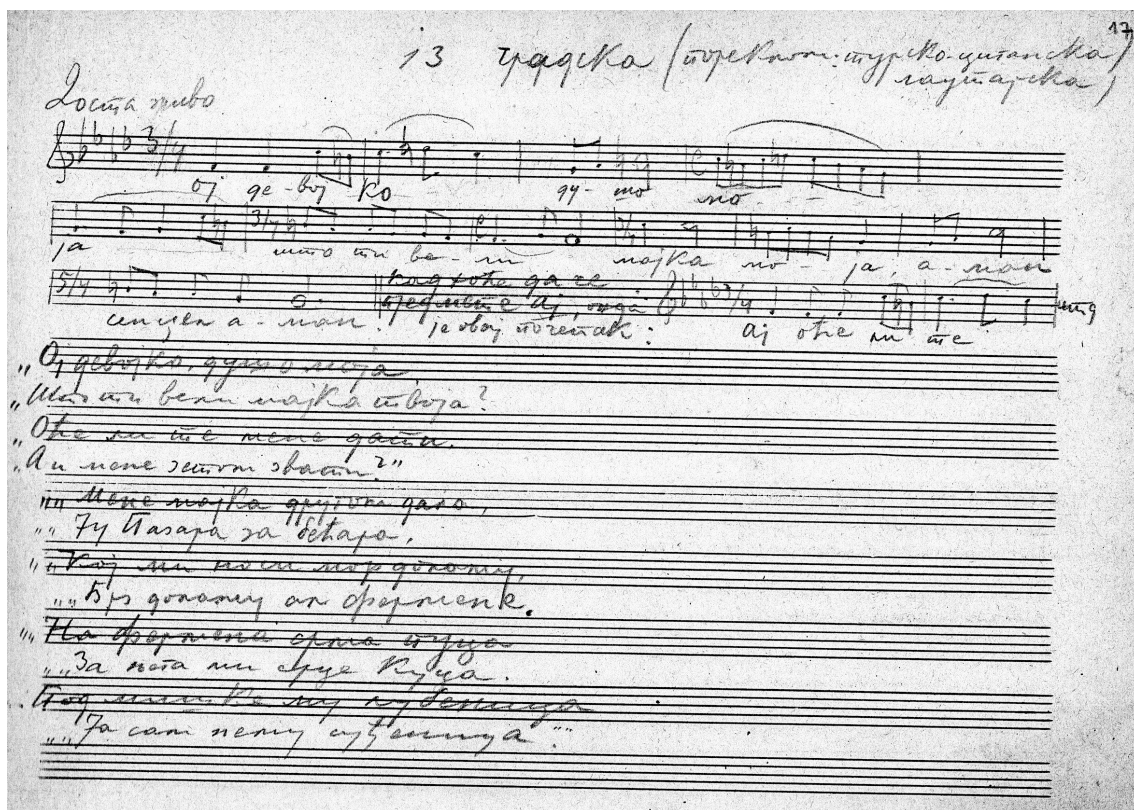 17
13 градска (пореклом: турско-циганска)
лаутарска)
Доста живо
3/4
ој де-вој ко ду-шо мо-
3/4
ја што ти ве-ли мајка мо-ја, а-ман
5/4 кад хоће да се 3/4 итд
ај, онда
а-ман. је овај почетак: Ај оће ли те
„Ој девојко, душо моја,
„Што ти вели мајка твоја?
„Оће ли те мене дати.
„А и мене зетом звати?"
„„Мене мајка другом дала,
„„Ју Пазара за бећара,
„„Кој ми носи мор доламу,
„„Брз доламу ал фермене.
„„На фермена срма туца
„„За њега ми срце куца.
Под мишке му лубеница
„„Ја сам њему суђеница."